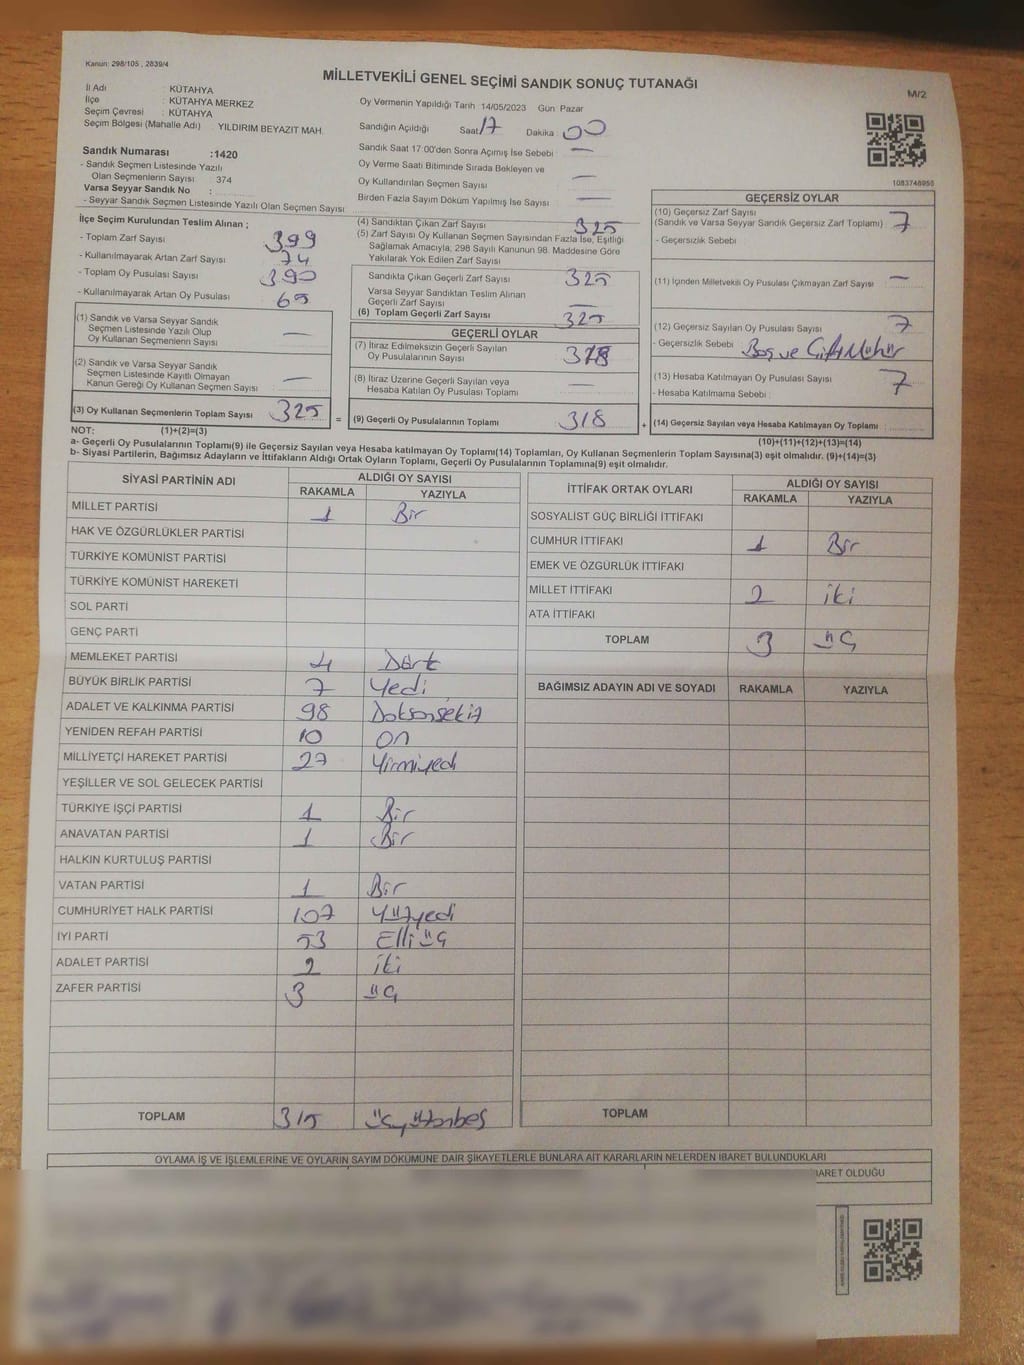 Kanun: 298/105 , 2839/4
MİLLETVEKİLİ GENEL SEÇİMİ SANDIK SONUÇ TUTANAĞI
M/2
İl Adı : KÜTAHYA
İlçe : KÜTAHYA MERKEZ
Seçim Çevresi : KÜTAHYA
Seçim Bölgesi (Mahalle Adı) YILDIRIM BEYAZIT MAH.
Sandık Numarası :1420
- Sandık Seçmen Listesinde Yazılı
Olan Seçmenlerin Sayısı : 374
Varsa Seyyar Sandık No :
- Seyyar Sandık Seçmen Listesinde Yazılı Olan Seçmen Sayısı
Oy Vermenin Yapıldığı Tarih 14/05/2023 Gün Pazar
Sandığın Açıldığı Saat 17 Dakika : 00
Sandık Saat 17:00'den Sonra Açımış İse Sebebi : —
Oy Verme Saati Bitiminde Sırada Bekleyen ve
Oy Kullandırılan Seçmen Sayısı : —
Birden Fazla Sayım Döküm Yapılmış İse Sayısı : —
1083748955
İlçe Seçim Kurulundan Teslim Alınan ;
- Toplam Zarf Sayısı : 399
- Kullanılmayarak Artan Zarf Sayısı : 74
- Toplam Oy Pusulası Sayısı : 390
- Kullanılmayarak Artan Oy Pusulası : 65
(1) Sandık ve Varsa Seyyar Sandık
Seçmen Listesinde Yazılı Olup
Oy Kullanan Seçmenlerin Sayısı : —
(2) Sandık ve Varsa Seyyar Sandık
Seçmen Listesinde Kayıtlı Olmayan
Kanun Gereği Oy Kullanan Seçmen Sayısı : —
(3) Oy Kullanan Seçmenlerin Toplam Sayısı : 325
(4) Sandıktan Çıkan Zarf Sayısı : 325
(5) Zarf Sayısı Oy Kullanan Seçmen Sayısından Fazla İse, Eşitliği
Sağlamak Amacıyla, 298 Sayılı Kanunun 98. Maddesine Göre
Yakılarak Yok Edilen Zarf Sayısı
Sandıkta Çıkan Geçerli Zarf Sayısı : 325
Varsa Seyyar Sandıktan Teslim Alınan
Geçerli Zarf Sayısı : —
(6) Toplam Geçerli Zarf Sayısı : 325
GEÇERLİ OYLAR
(7) İtiraz Edilmeksizin Geçerli Sayılan
Oy Pusulalarının Sayısı : 318
(8) İtiraz Üzerine Geçerli Sayılan veya
Hesaba Katılan Oy Pusulaları Toplamı : —
= (9) Geçerli Oy Pusulalarının Toplamı : 318
GEÇERSİZ OYLAR
(10) Geçersiz Zarf Sayısı
(Sandık ve Varsa Seyyar Sandık Geçersiz Zarf Toplamı) : 7
- Geçersizlik Sebebi
(11) İçinden Milletvekili Oy Pusulası Çıkmayan Zarf Sayısı : —
(12) Geçersiz Sayılan Oy Pusulası Sayısı : 7
- Geçersizlik Sebebi : Boş ve Çift Mühür
(13) Hesaba Katılmayan Oy Pusulası Sayısı : 7
- Hesaba Katılmama Sebebi :
+ (14) Geçersiz Sayılan veya Hesaba Katılmayan Oy Toplamı :
NOT: (1)+(2)=(3)
(10)+(11)+(12)+(13)=(14)
a- Geçerli Oy Pusulalarının Toplamı(9) ile Geçersiz Sayılan veya Hesaba katılmayan Oy Toplamı(14) Toplamları, Oy Kullanan Seçmenlerin Toplam Sayısına(3) eşit olmalıdır. (9)+(14)=(3)
b- Siyasi Partilerin, Bağımsız Adayların ve İttifakların Aldığı Ortak Oyların Toplamı, Geçerli Oy Pusulalarının Toplamına(9) eşit olmalıdır.
SİYASİ PARTİNİN ADI ALDIĞI OY SAYISI
RAKAMLA YAZIYLA
MİLLET PARTİSİ 1 Bir
HAK VE ÖZGÜRLÜKLER PARTİSİ
TÜRKİYE KOMÜNİST PARTİSİ
TÜRKİYE KOMÜNİST HAREKETİ
SOL PARTİ
GENÇ PARTİ
MEMLEKET PARTİSİ 4 Dört
BÜYÜK BİRLİK PARTİSİ 7 Yedi
ADALET VE KALKINMA PARTİSİ 98 Doksansekiz
YENİDEN REFAH PARTİSİ 10 On
MİLLİYETÇİ HAREKET PARTİSİ 27 Yirmiyedi
YEŞİLLER VE SOL GELECEK PARTİSİ
TÜRKİYE İŞÇİ PARTİSİ 1 Bir
ANAVATAN PARTİSİ 1 Bir
HALKIN KURTULUŞ PARTİSİ
VATAN PARTİSİ 1 Bir
CUMHURİYET HALK PARTİSİ 107 Yüzyedi
İYİ PARTİ 53 Elliüç
ADALET PARTİSİ 2 iki
ZAFER PARTİSİ 3 üç
TOPLAM 315 üçyüzonbeş
İTTİFAK ORTAK OYLARI ALDIĞI OY SAYISI
RAKAMLA YAZIYLA
SOSYALİST GÜÇ BİRLİĞİ İTTİFAKI
CUMHUR İTTİFAKI 1 Bir
EMEK VE ÖZGÜRLÜK İTTİFAKI
MİLLET İTTİFAKI 2 iki
ATA İTTİFAKI
TOPLAM 3 üç
BAĞIMSIZ ADAYIN ADI VE SOYADI RAKAMLA YAZIYLA
TOPLAM
OYLAMA İŞ VE İŞLEMLERİNE VE OYLARIN SAYIM DÖKÜMÜNE DAİR ŞİKAYETLERLE BUNLARA AİT KARARLARIN NELERDEN İBARET BULUNDUKLARI
İBARET OLDUĞU